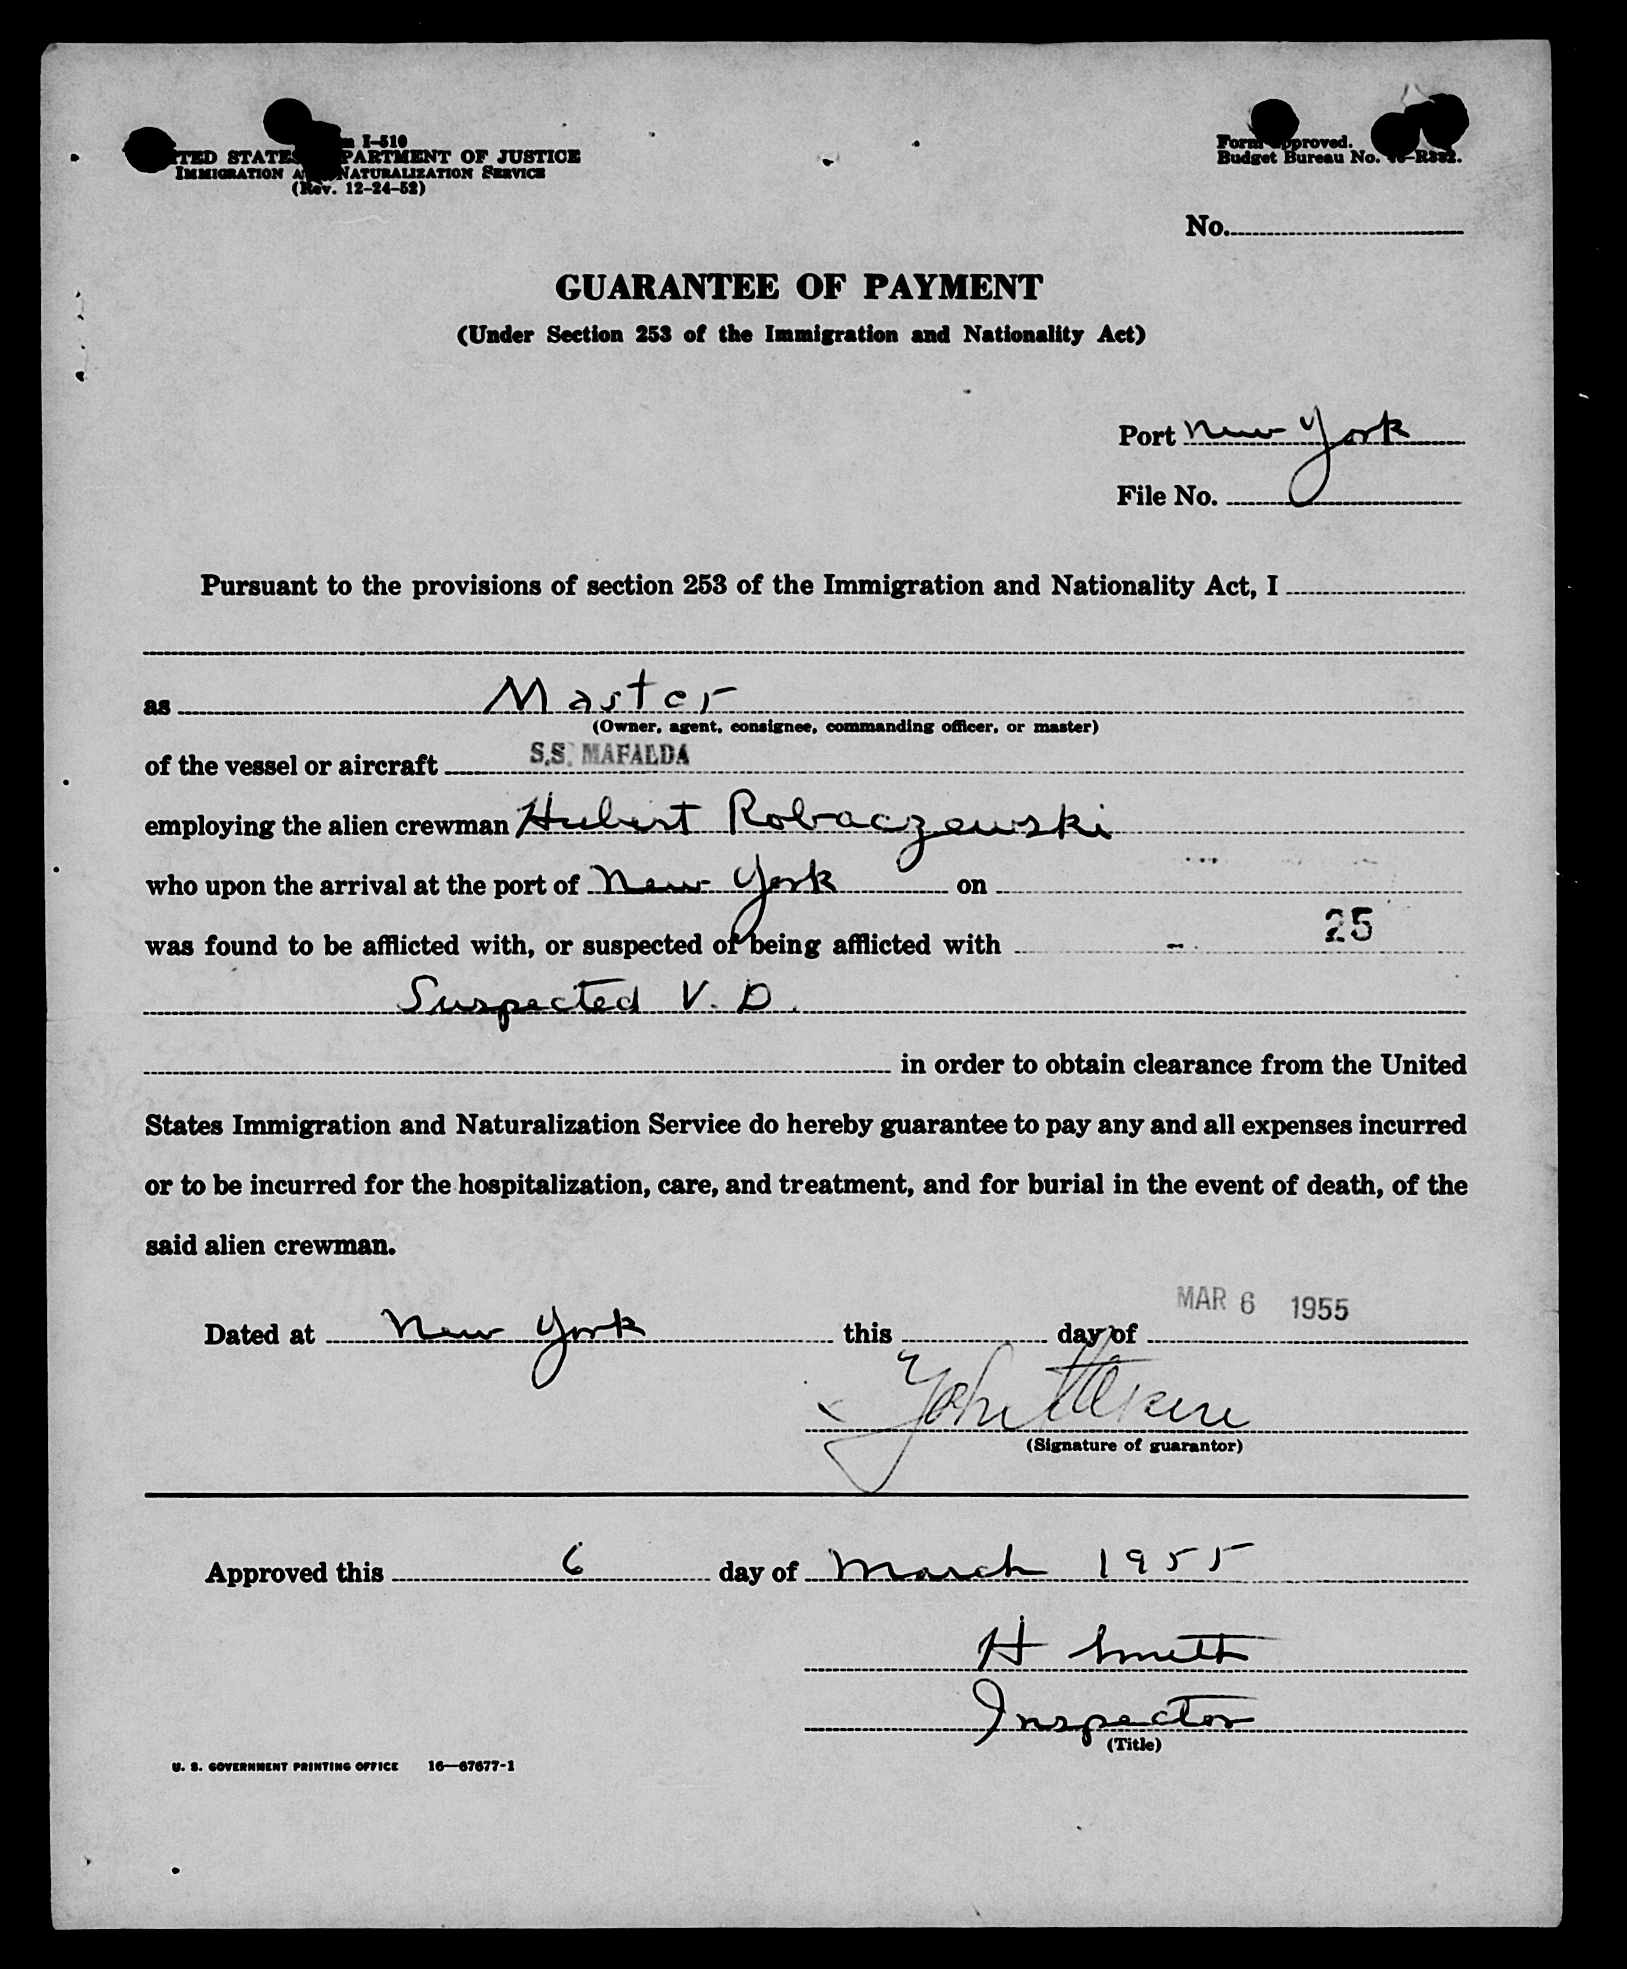 I-510
STATES DEPARTMENT OF JUSTICE
IMMIGRATION NATURALIZATION SERVICE
(Rev. 12-24-52)
Form Approved.
Budget Bureau No.
No.
GUARANTEE OF PAYMENT
(Under Section 253 of the Immigration and Nationality Act)
Port New York
File No.
Pursuant to the provisions of section 253 of the Immigration and Nationality Act, I
as Master
(Owner, agent, consignee, commanding officer, or master)
of the vessel or aircraft S.S. MAFALDA
employing the alien crewman Hubert Robaczewski
who upon the arrival at the port of New York on
was found to be afflicted with, or suspected of being afflicted with 25
Suspected V. D.
in order to obtain clearance from the United
States Immigration and Naturalization Service do hereby guarantee to pay any and all expenses incurred
or to be incurred for the hospitalization, care, and treatment, and for burial in the event of death, of the
said alien crewman.
MAR 6 1955
Dated at New York this day of
(Signature of guarantor)
Approved this 6 day of March 1955
H Smith
Inspector
(Title)
U. S. GOVERNMENT PRINTING OFFICE 16—67677-1